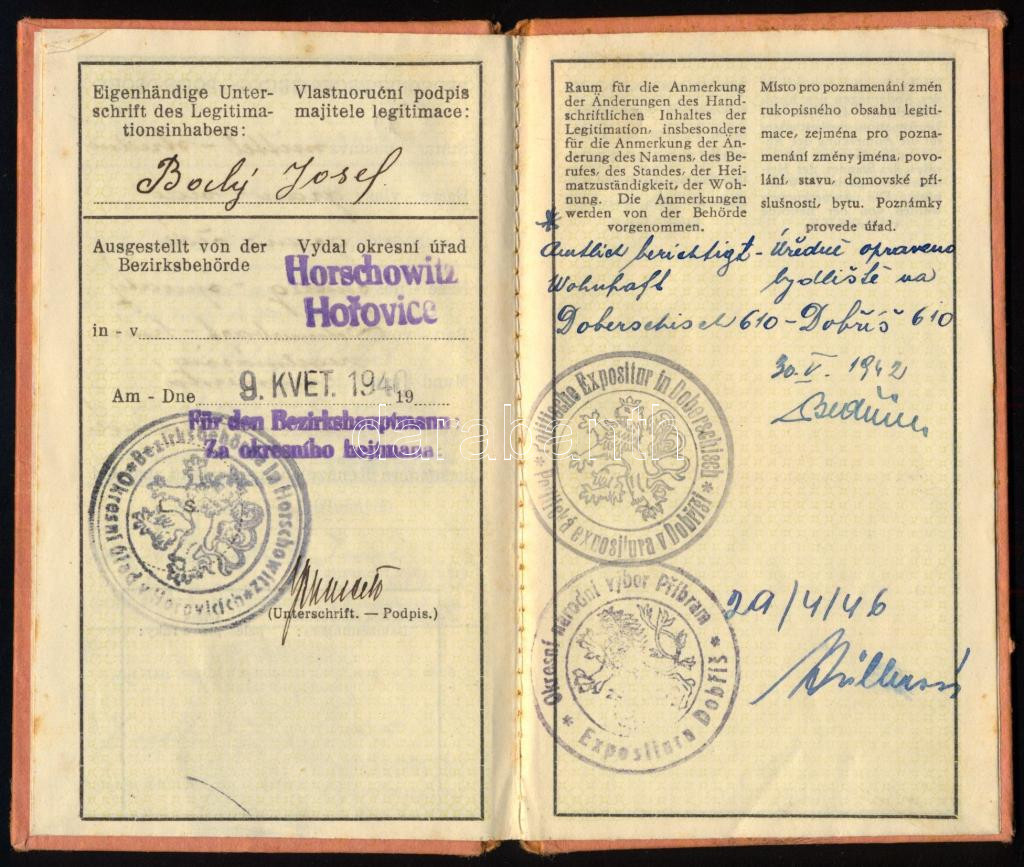 Eigenhändige Unter-
schrift des Legitima-
tionsinhabers:
Vlastnoruční podpis
majitele legitimace:
Bočlý Josef
Ausgestellt von der
Bezirksbehörde
Vydal okresní úřad
Horschowitz
Hořovice
in - v
Am - Dne 9. KVET. 1940 19
Für den Bezirkshauptmann:
Za okresního hejtmana
Bezirksbehörde in Horschowitz
Okresní úřad v Hořovicích
L. S.
(Unterschrift. — Podpis.)
Raum für die Anmerkung
der Änderungen des Hand-
schriftlichen Inhaltes der
Legitimation, insbesondere
für die Anmerkung der Än-
derung des Namens, des Be-
rufes, des Standes, der Hei-
matzuständigkeit, der Woh-
nung. Die Anmerkungen
werden von der Behörde
vorgenommen.
Místo pro poznamenání změn
rukopisného obsahu legiti-
mace, zejména pro pozna-
menání změny jména, povo-
lání, stavu, domovské pří-
slušnosti, bytu. Poznámky
provede úřad.
* Amtlich berichtigt - Úředně opraveno
Wohnhaft bydliště na
Doberschisch 610 - Dobříš 610
30. V. 1942
Politische Expositur in Doberschisch
Politická expositura v Dobříši
Okresní národní výbor Příbram
* Expositura Dobříš *
29/4/46
darabanth